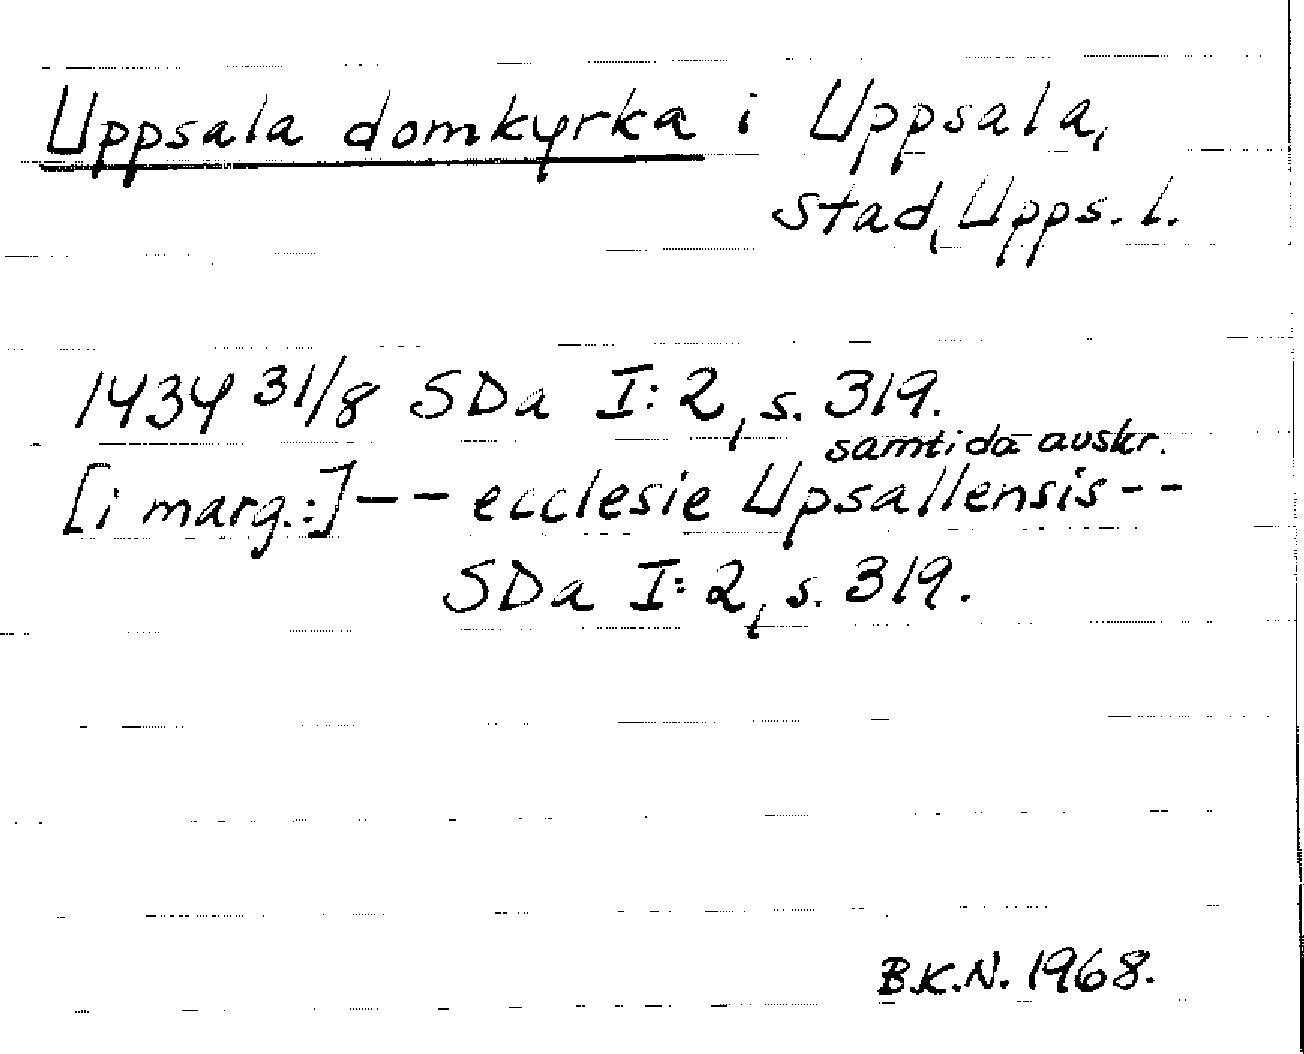 Uppsala domkyrka i Uppsala,
stad, Upps. l.
1434 31/8 SDa I:2, s. 319.
samtida avskr.
[i marg.:] -- ecclesie Upsallensis --
SDa I:2, s. 319.
B.K.N. 1968.